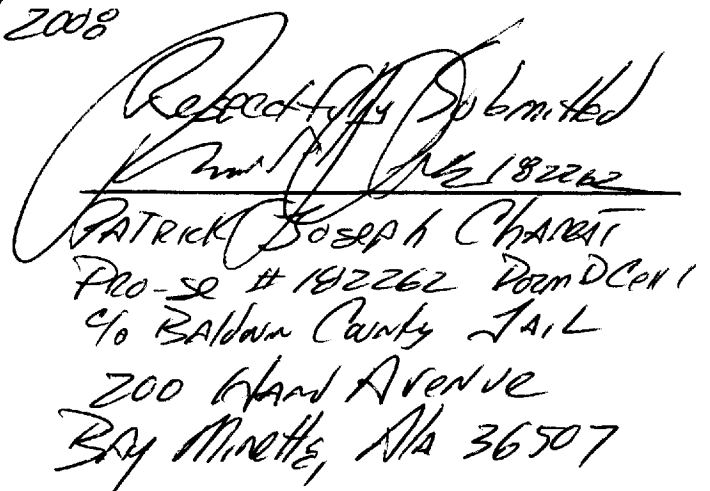 2008
Respectfully Submitted
182262
PATRICK Joseph
Pro-se # 182262 Dorm D Cell 1
c/o BAldwin County JAiL
200 HAnd Avenue
BAy Minette, Ala 36507